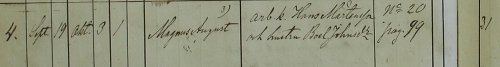 4. Sept 19 Okt. 3 1 Magnus August arb.k. Hans Mårtensson No 20 31
och hustru Boel Johnsdr pag. 99